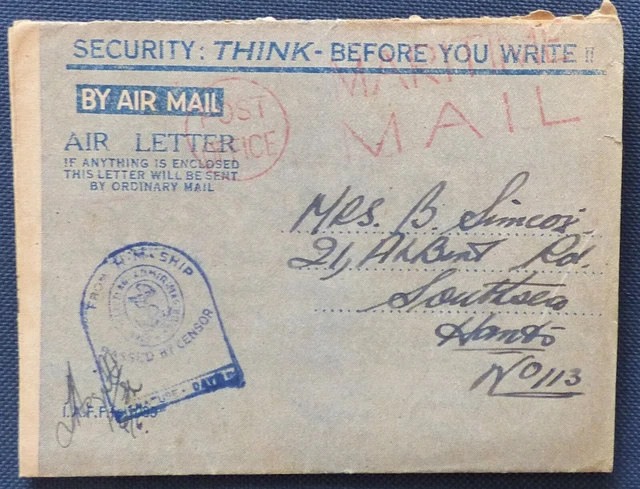 SECURITY: THINK - BEFORE YOU WRITE !!
BY AIR MAIL
POST OFFICE
MARITIME
MAIL
AIR LETTER
IF ANYTHING IS ENCLOSED
THIS LETTER WILL BE SENT
BY ORDINARY MAIL
MRS. B. Simcox
21, Albent Rd.
Southsea
Hants
No 113
FROM H.M. SHIP
PASSED BY CENSOR
SIGNATURE - DATE